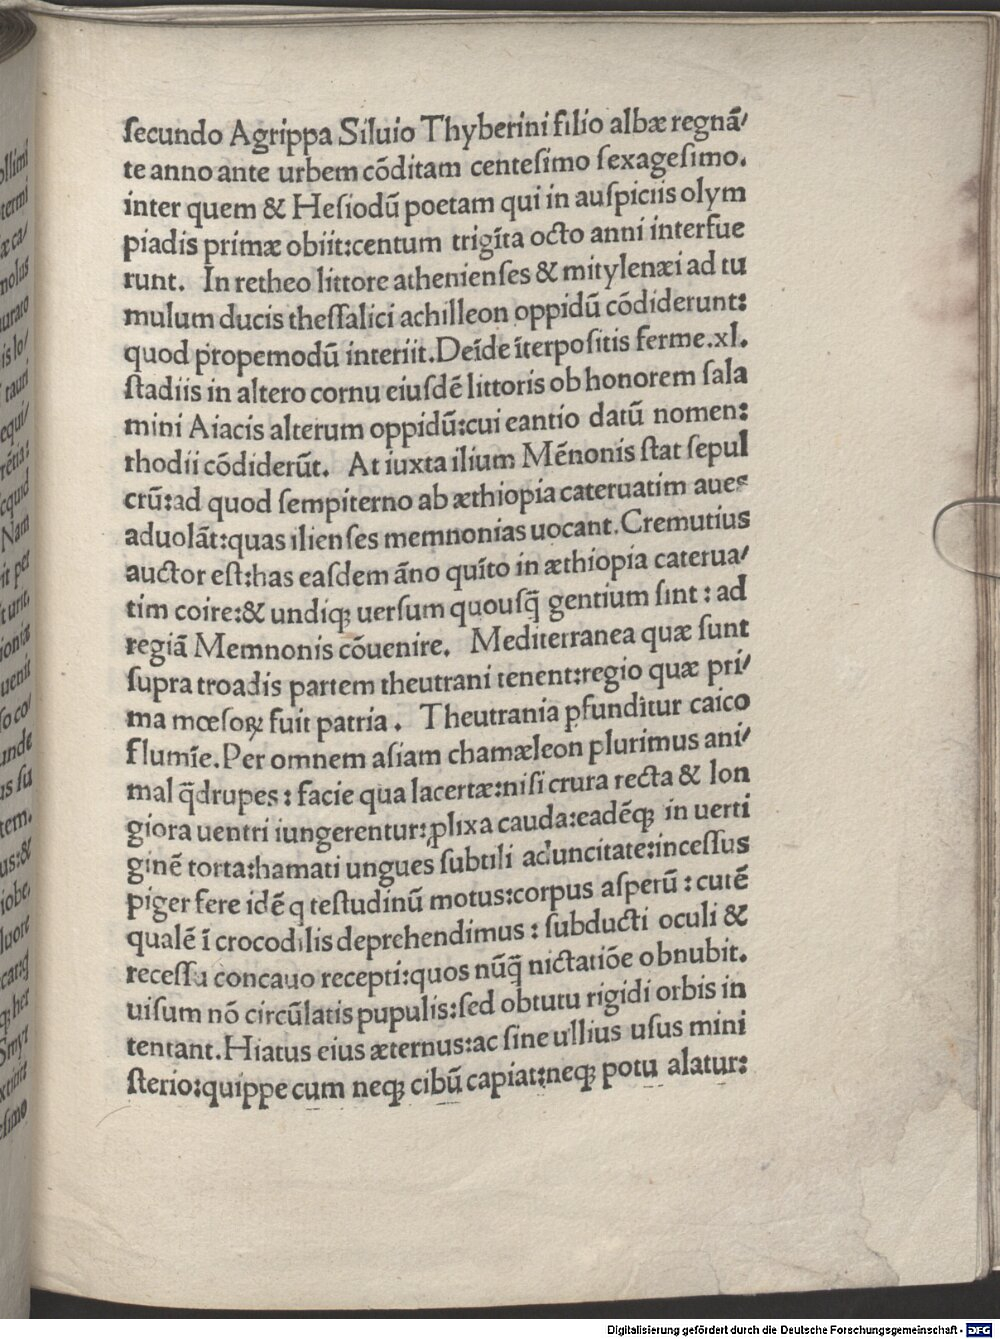 secundo Agrippa Siluio Thyberini filio albæ regnã/
te anno ante urbem cõditam centesimo sexagesimo.
inter quem & Hesiodũ poetam qui in auspiciis olym
piadis primæ obiit:centum trigĩta octo anni interfue
runt. In retheo littore athenienses & mitylenæi ad tu
mulum ducis thessalici achilleon oppidũ cõdiderunt:
quod propemodũ interiit.Deĩde ĩterpositis ferme.xl.
stadiis in altero cornu eiusdẽ littoris ob honorem sala
mini Aiacis alterum oppidũ:cui eantio datũ nomen:
rhodii cõdiderũt. At iuxta ilium Mẽnonis stat sepul
crũ:ad quod sempiterno ab æthiopia cateruatim aues
aduolãt:quas ilienses memnonias uocant.Cremutius
auctor est:has easdem ãno quĩto in æthiopia caterua/
tim coire:& undiqꝫ uersum quousq̃ gentium sint : ad
regiã Memnonis cõuenire. Mediterranea quæ sunt
supra troadis partem theutrani tenent:regio quæ pri/
ma mœsoꝝ fuit patria . Theutrania pfunditur caico
flumĩe.Per omnem asiam chamæleon plurimus ani/
mal q̃drupes : facie qua lacertæ:nisi crura recta & lon
giora uentri iungerentur:ꝓlixa cauda:eadẽqꝫ in uerti
ginẽ torta:hamati ungues subtili aduncitate:incessus
piger fere idẽ q testudinũ motus:corpus asperũ : cutẽ
qualẽ ĩ crocodilis deprehendimus : subducti oculi &
recessu concauo recepti:quos nũq̃ nictatiõe obnubit.
uisum nõ circũlatis pupulis:sed obtutu rigidi orbis in
tentant.Hiatus eius æternus:ac sine ullius usus mini
sterio:quippe cum neqꝫ cibũ capiat:neqꝫ potu alatur:
Digitalisierung gefördert durch die Deutsche Forschungsgemeinschaft - DFG